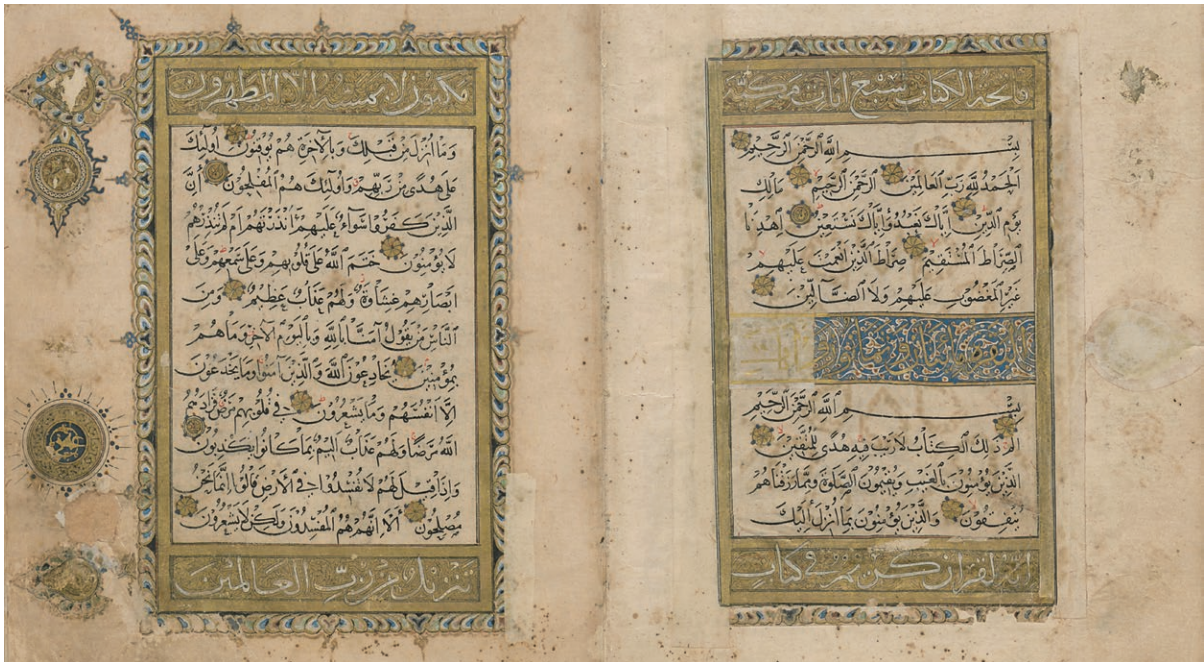 فاتحة الكتاب سبع ايات مكية
بِسْمِ اللَّهِ الرَّحْمَنِ الرَّحِيمِ
الْحَمْدُ لِلَّهِ رَبِّ الْعَالَمِينَ الرَّحْمَنِ الرَّحِيمِ مَالِكِ
يَوْمِ الدِّينِ اِيَّاكَ نَعْبُدُ وَاِيَّاكَ نَسْتَعِينُ اِهْدِنَا
الصِّرَاطَ الْمُسْتَقِيمَ صِرَاطَ الَّذِينَ اَنْعَمْتَ عَلَيْهِمْ
غَيْرِ الْمَغْضُوبِ عَلَيْهِمْ وَلَا الضَّالِّينَ
بِسْمِ اللَّهِ الرَّحْمَنِ الرَّحِيمِ
الم ذَلِكَ الْكِتَابُ لَا رَيْبَ فِيهِ هُدًى لِلْمُتَّقِينَ
الَّذِينَ يُؤْمِنُونَ بِالْغَيْبِ وَيُقِيمُونَ الصَّلَوةَ وَمِمَّا رَزَقْنَاهُمْ
يُنْفِقُونَ وَالَّذِينَ يُؤْمِنُونَ بِمَا اُنْزِلَ اِلَيْكَ
انه لقران كريم في كتاب
مكنون لا يمسه الا المطهرون
وَمَا اُنْزِلَ مِنْ قَبْلِكَ وَبِالْآخِرَةِ هُمْ يُوقِنُونَ اُولَئِكَ
عَلَى هُدًى مِنْ رَبِّهِمْ وَاُولَئِكَ هُمُ الْمُفْلِحُونَ اِنَّ
الَّذِينَ كَفَرُوا سَوَآءٌ عَلَيْهِمْ ءَاَنْذَرْتَهُمْ اَمْ لَمْ تُنْذِرْهُمْ
لَا يُؤْمِنُونَ خَتَمَ اللَّهُ عَلَى قُلُوبِهِمْ وَعَلَى سَمْعِهِمْ وَعَلَى
اَبْصَارِهِمْ غِشَاوَةٌ وَلَهُمْ عَذَابٌ عَظِيمٌ وَمِنَ
النَّاسِ مَنْ يَقُولُ آمَنَّا بِاللَّهِ وَبِالْيَوْمِ الْآخِرِ وَمَا هُمْ
بِمُؤْمِنِينَ يُخَادِعُونَ اللَّهَ وَالَّذِينَ آمَنُوا وَمَا يَخْدَعُونَ
اِلَّا اَنْفُسَهُمْ وَمَا يَشْعُرُونَ فِي قُلُوبِهِمْ مَرَضٌ فَزَادَهُمُ
اللَّهُ مَرَضًا وَلَهُمْ عَذَابٌ اَلِيمٌ بِمَا كَانُوا يَكْذِبُونَ
وَاِذَا قِيلَ لَهُمْ لَا تُفْسِدُوا فِي الْاَرْضِ قَالُوا اِنَّمَا نَحْنُ
مُصْلِحُونَ اَلَا اِنَّهُمْ هُمُ الْمُفْسِدُونَ وَلَكِنْ لَا يَشْعُرُونَ
تنزيل من رب العالمين